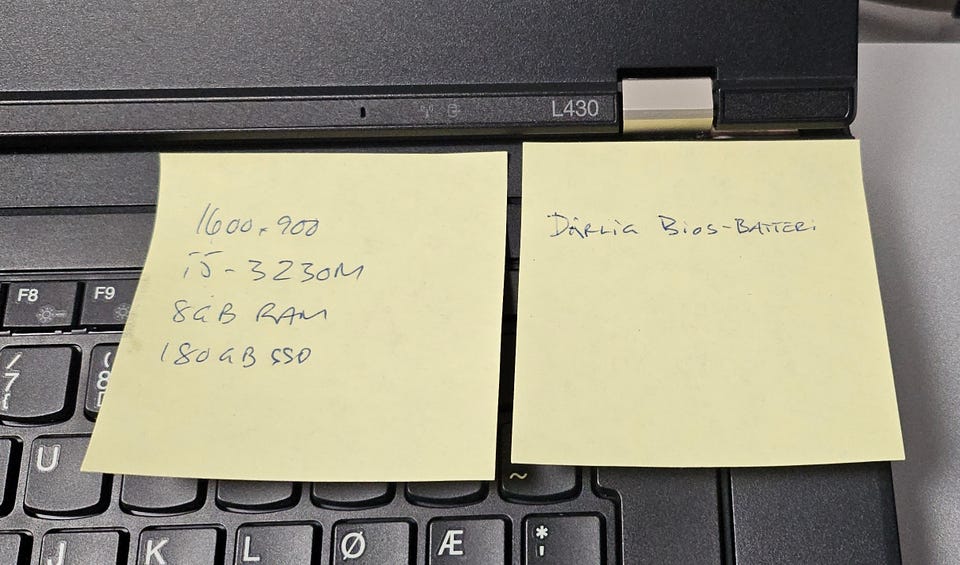 L430
1600x900
i5-3230M
8GB RAM
180GB SSD
Dårlig Bios-Batteri
F8
F9
/
7
{
(
8
U
~
J
K
L
Ø
Æ
*
'